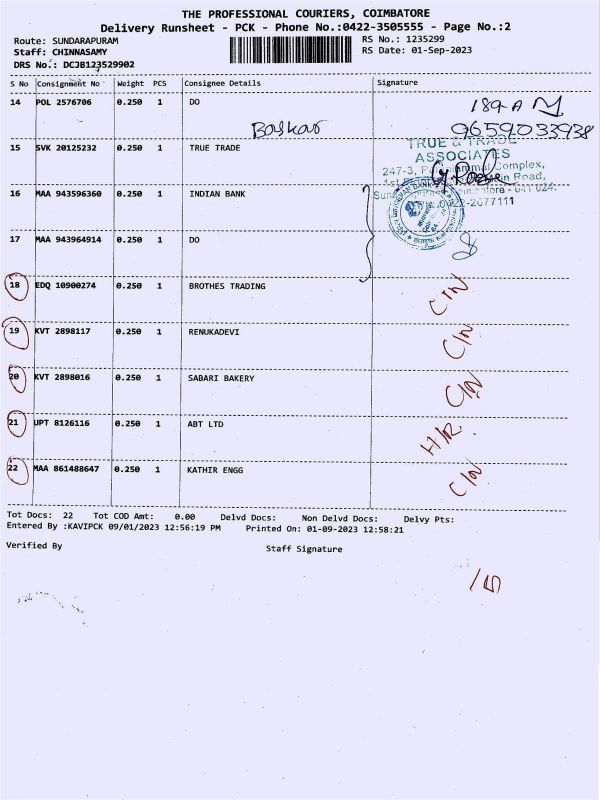 THE PROFESSIONAL COURIERS, COIMBATORE
Delivery Runsheet - PCK - Phone No.:0422-3505555 - Page No.:2
Route: SUNDARAPURAM RS No.: 1235299
Staff: CHINNASAMY RS Date: 01-Sep-2023
DRS No.: DCJB123529902
S No Consignment No Weight PCS Consignee Details Signature
14 POL 2576706 0.250 1 DO 189-A
Baskar 9659033938
15 SVK 20125232 0.250 1 TRUE TRADE
TRUE & TRADE
ASSOCIATES
247-3, Complex,
Road,
2677111
16 MAA 943596360 0.250 1 INDIAN BANK
17 MAA 943964914 0.250 1 DO
18 EDQ 10900274 0.250 1 BROTHES TRADING C/N
19 KVT 2898117 0.250 1 RENUKADEVI C/N
20 KVT 2898016 0.250 1 SABARI BAKERY C/N
21 UPT 8126116 0.250 1 ABT LTD H/R
22 MAA 861488647 0.250 1 KATHIR ENGG C/N
Tot Docs: 22 Tot COD Amt: 0.00 Delvd Docs: Non Delvd Docs: Delvy Pts:
Entered By :KAVIPCK 09/01/2023 12:56:19 PM Printed On: 01-09-2023 12:58:21
Verified By Staff Signature